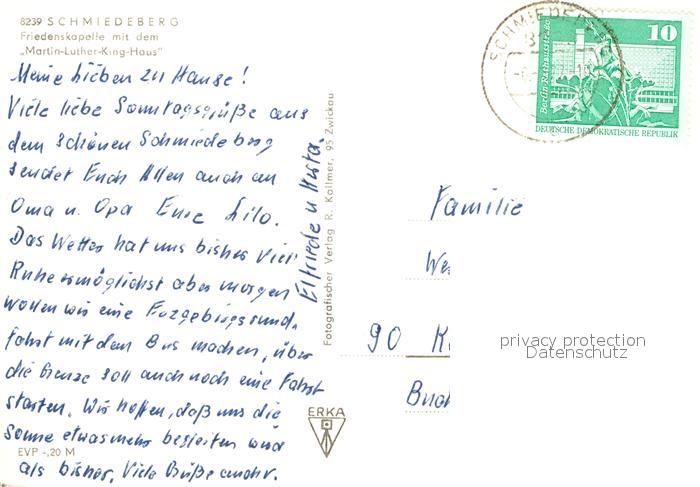 8239 SCHMIEDEBERG
Friedenskapelle mit dem
„Martin-Luther-King-Haus"
Meine Lieben zu Hause!
Viele liebe Sonntagsgrüße aus
dem schönen Schmiedeberg
sendet Euch Allen auch an
Oma u. Opa Eure Lilo.
Das Wetter hat uns bisher viel
Ruhe ermöglicht aber morgen
wollen wir eine Erzgebirgsrund-
fahrt mit dem Bus machen, über
die Grenze soll auch noch eine Fahrt
starten. Wir hoffen, daß uns die
Sonne etwas mehr begleiten wird
als bisher. Viele Grüße auch v.
Elfriede u
EVP -,20 M
Fotografischer Verlag R. Kallmer, 95 Zwickau
ERKA
SCHMIEDEBERG
Berlin-Rathausstraße
10
DEUTSCHE DEMOKRATISCHE REPUBLIK
Familie
We
90 K
Buch
privacy protection
Datenschutz